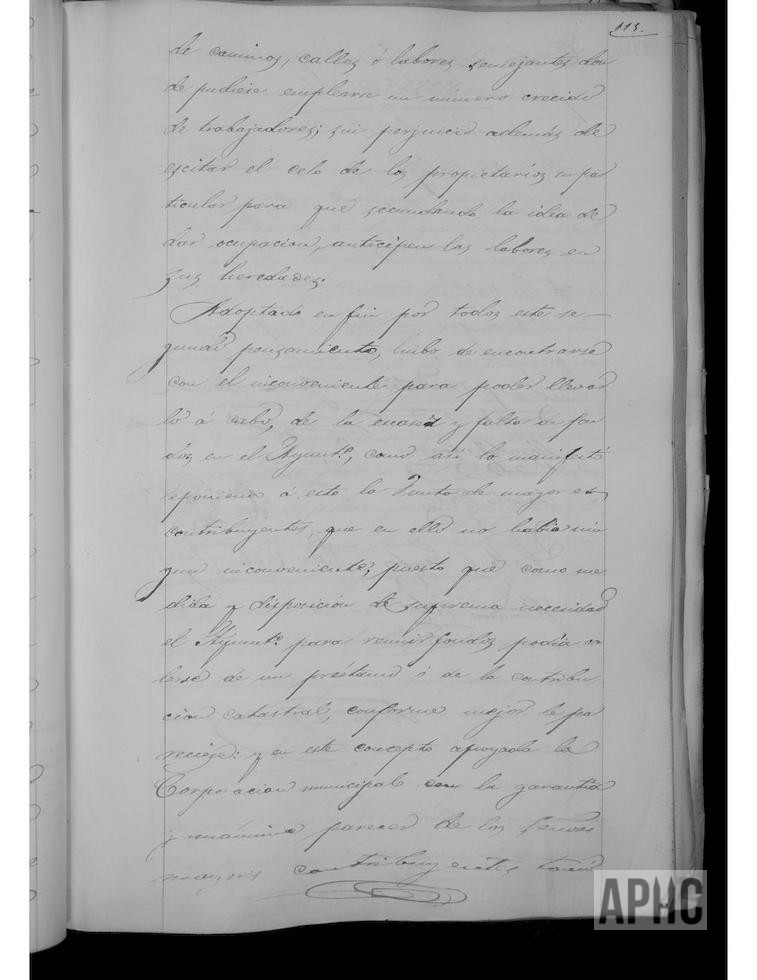 115.
de caminos, calles ó labores semejantes don
de pudiese emplearse un número crecido
de trabajadores; sin perjuicio además de
escitar el celo de los propietarios en par
ticular para que secundando la idea de
dar ocupacion, anticipen las labores en
sus heredades.
Adoptado en fin por todos este se-
gundo pensamiento, hubo de encontrarse
con el inconveniente para poder llevar
lo á cabo, de la escasez y falta de fon
dos en el Ayunt.º, como así lo manifestó
reponiendo á esto la Junta de mayores
contribuyentes, que en ello no habia nin
gun inconveniente, puesto que como me
dida y disposición de suprema necesidad
el Ayunt.º para reunir fondos podia va
lerse de un préstamo ó de la contribu
cion catastral, conforme mejor le pa
reciese: y en este concepto apoyada la
Corporacion municipal con la garantia
y unánime parecer de los Señores
mayores contribuyentes tomó
APHC